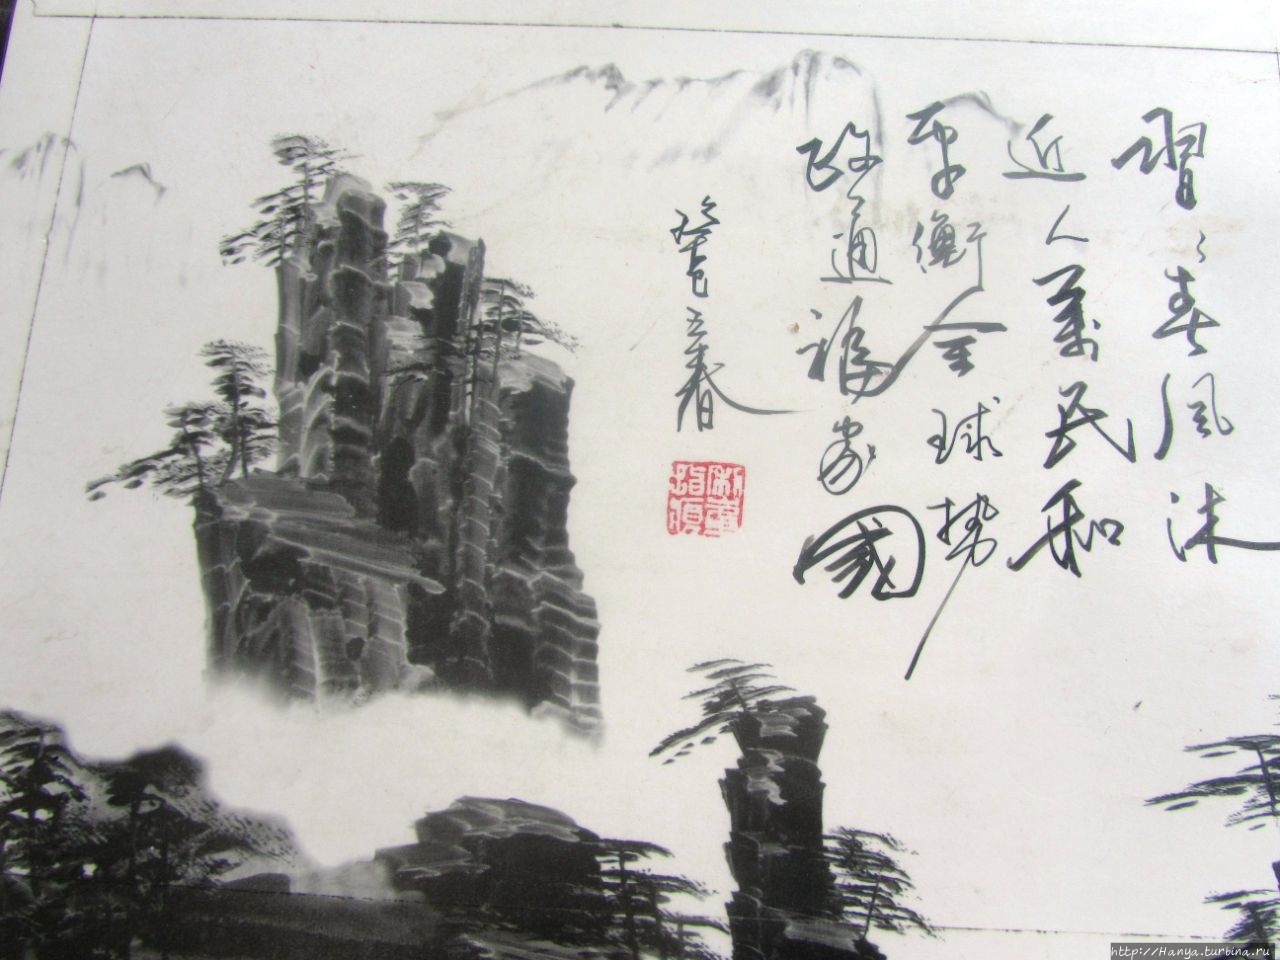 習々春風沐
近人萬民和
平衡全球勢
政通福家國
癸巳立春
http://Hanya.turbina.ru